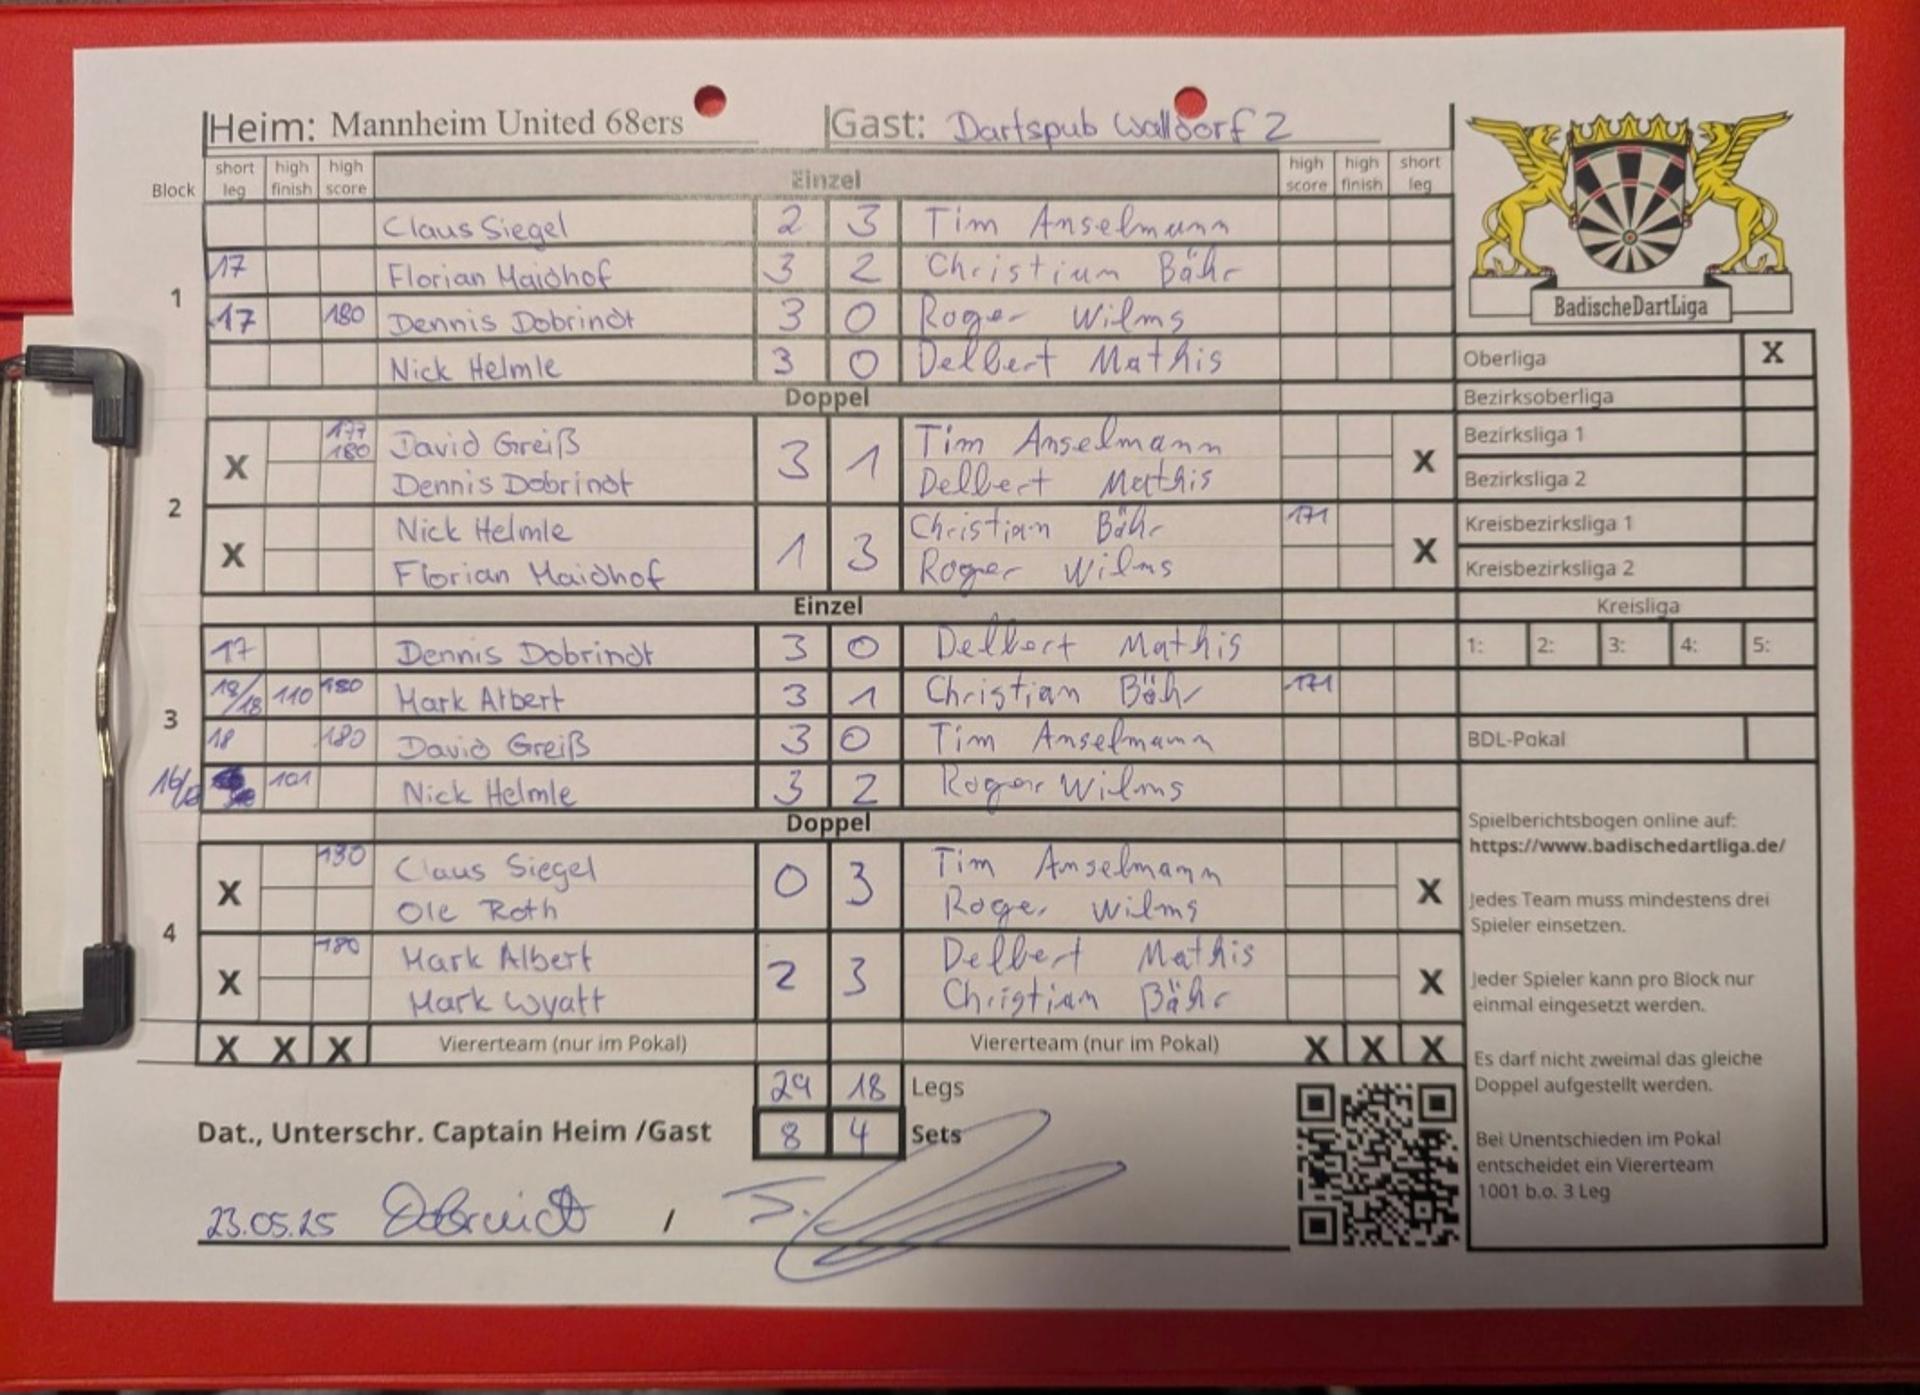 Heim: Mannheim United 68ers Gast: Dartspub Walldorf 2
Block short leg high finish high score Einzel high score high finish short leg
Claus Siegel 2 3 Tim Anselmann
1 17 Florian Maidhof 3 2 Christian Bähr
17 180 Dennis Dobrindt 3 0 Roger Wilms
Nick Helmle 3 0 Delbert Mathis
Doppel
2 X 177 180 David Greiß 3 1 Tim Anselmann X
Dennis Dobrindt Delbert Mathis
X Nick Helmle 1 3 Christian Bähr 171 X
Florian Maidhof Roger Wilms
Einzel
3 17 Dennis Dobrindt 3 0 Delbert Mathis
18/18 110 180 Mark Albert 3 1 Christian Bähr 171
18 180 David Greiß 3 0 Tim Anselmann
101 Nick Helmle 3 2 Roger Wilms
Doppel
4 X Claus Siegel 0 3 Tim Anselmann X
Ole Roth Roger Wilms
X 180 Mark Albert 2 3 Delbert Mathis X
Mark Wyatt Christian Bähr
X X X Viererteam (nur im Pokal) Viererteam (nur im Pokal) X X X
29 18 Legs
Dat., Unterschr. Captain Heim /Gast 8 4 Sets
23.05.25 Dobrindt /
BadischeDartLiga
Oberliga X
Bezirksoberliga
Bezirksliga 1
Bezirksliga 2
Kreisbezirksliga 1
Kreisbezirksliga 2
Kreisliga
1: 2: 3: 4: 5:
BDL-Pokal
Spielberichtsbogen online auf:
https://www.badischedartliga.de/
Jedes Team muss mindestens drei
Spieler einsetzen.
Jeder Spieler kann pro Block nur
einmal eingesetzt werden.
Es darf nicht zweimal das gleiche
Doppel aufgestellt werden.
Bei Unentschieden im Pokal
entscheidet ein Viererteam
1001 b.o. 3 Leg